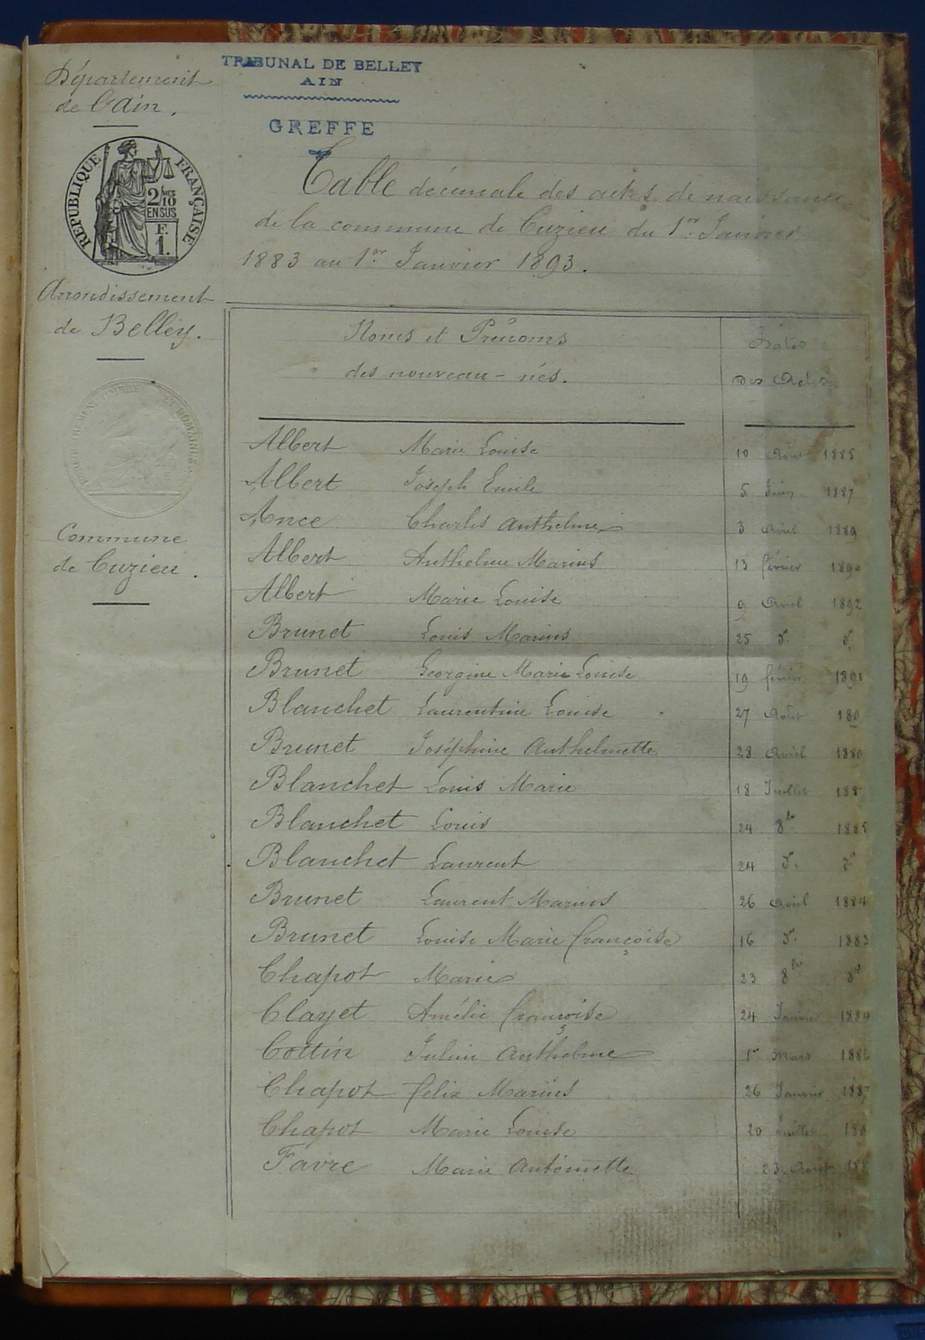 Département
de l'Ain.
TRIBUNAL DE BELLEY
AIN
GREFFE
RÉPUBLIQUE FRANÇAISE
2/10
EN SUS
F.
1.
Table décennale des actes de naissance
de la commune de Cuzieu du 1er Janvier
1883 au 1er Janvier 1893.
Arrondissement
de Belley.
Commune
de Cuzieu.
Noms et Prénoms
des nouveau-nés.
Dates
des Actes
Albert Marie Louise 10 1885
Albert Joseph Emile 5 Juin 1887
Ance Charles Anthelme 3 Avril 1889
Albert Anthelme Marius 13 février 1890
Albert Marie Louise 9 Avril 1892
Brunet Louis Marius 25 do do
Brunet Georgine Marie Louise 19 février 1891
Blanchet Laurentine Louise 27 Août
Brunet Joséphine Anthelmette 28 Avril
Blanchet Louis Marie 18 Juillet
Blanchet Louis 24 8bre 1885
Blanchet Laurent 24 do do
Brunet Laurent Marius 26 Avril 1884
Brunet Louise Marie françoise 16 do 1883
Chapot Marie 23 8bre do
Clayet Amélie françoise 24 Janvier 1884
Cottin Julien Anthelme 1er Mars
Chapot félix Marius 26 Janvier
Chapot Marie Louise 20 Juillet
Favre Marie Antoinette 23 Août